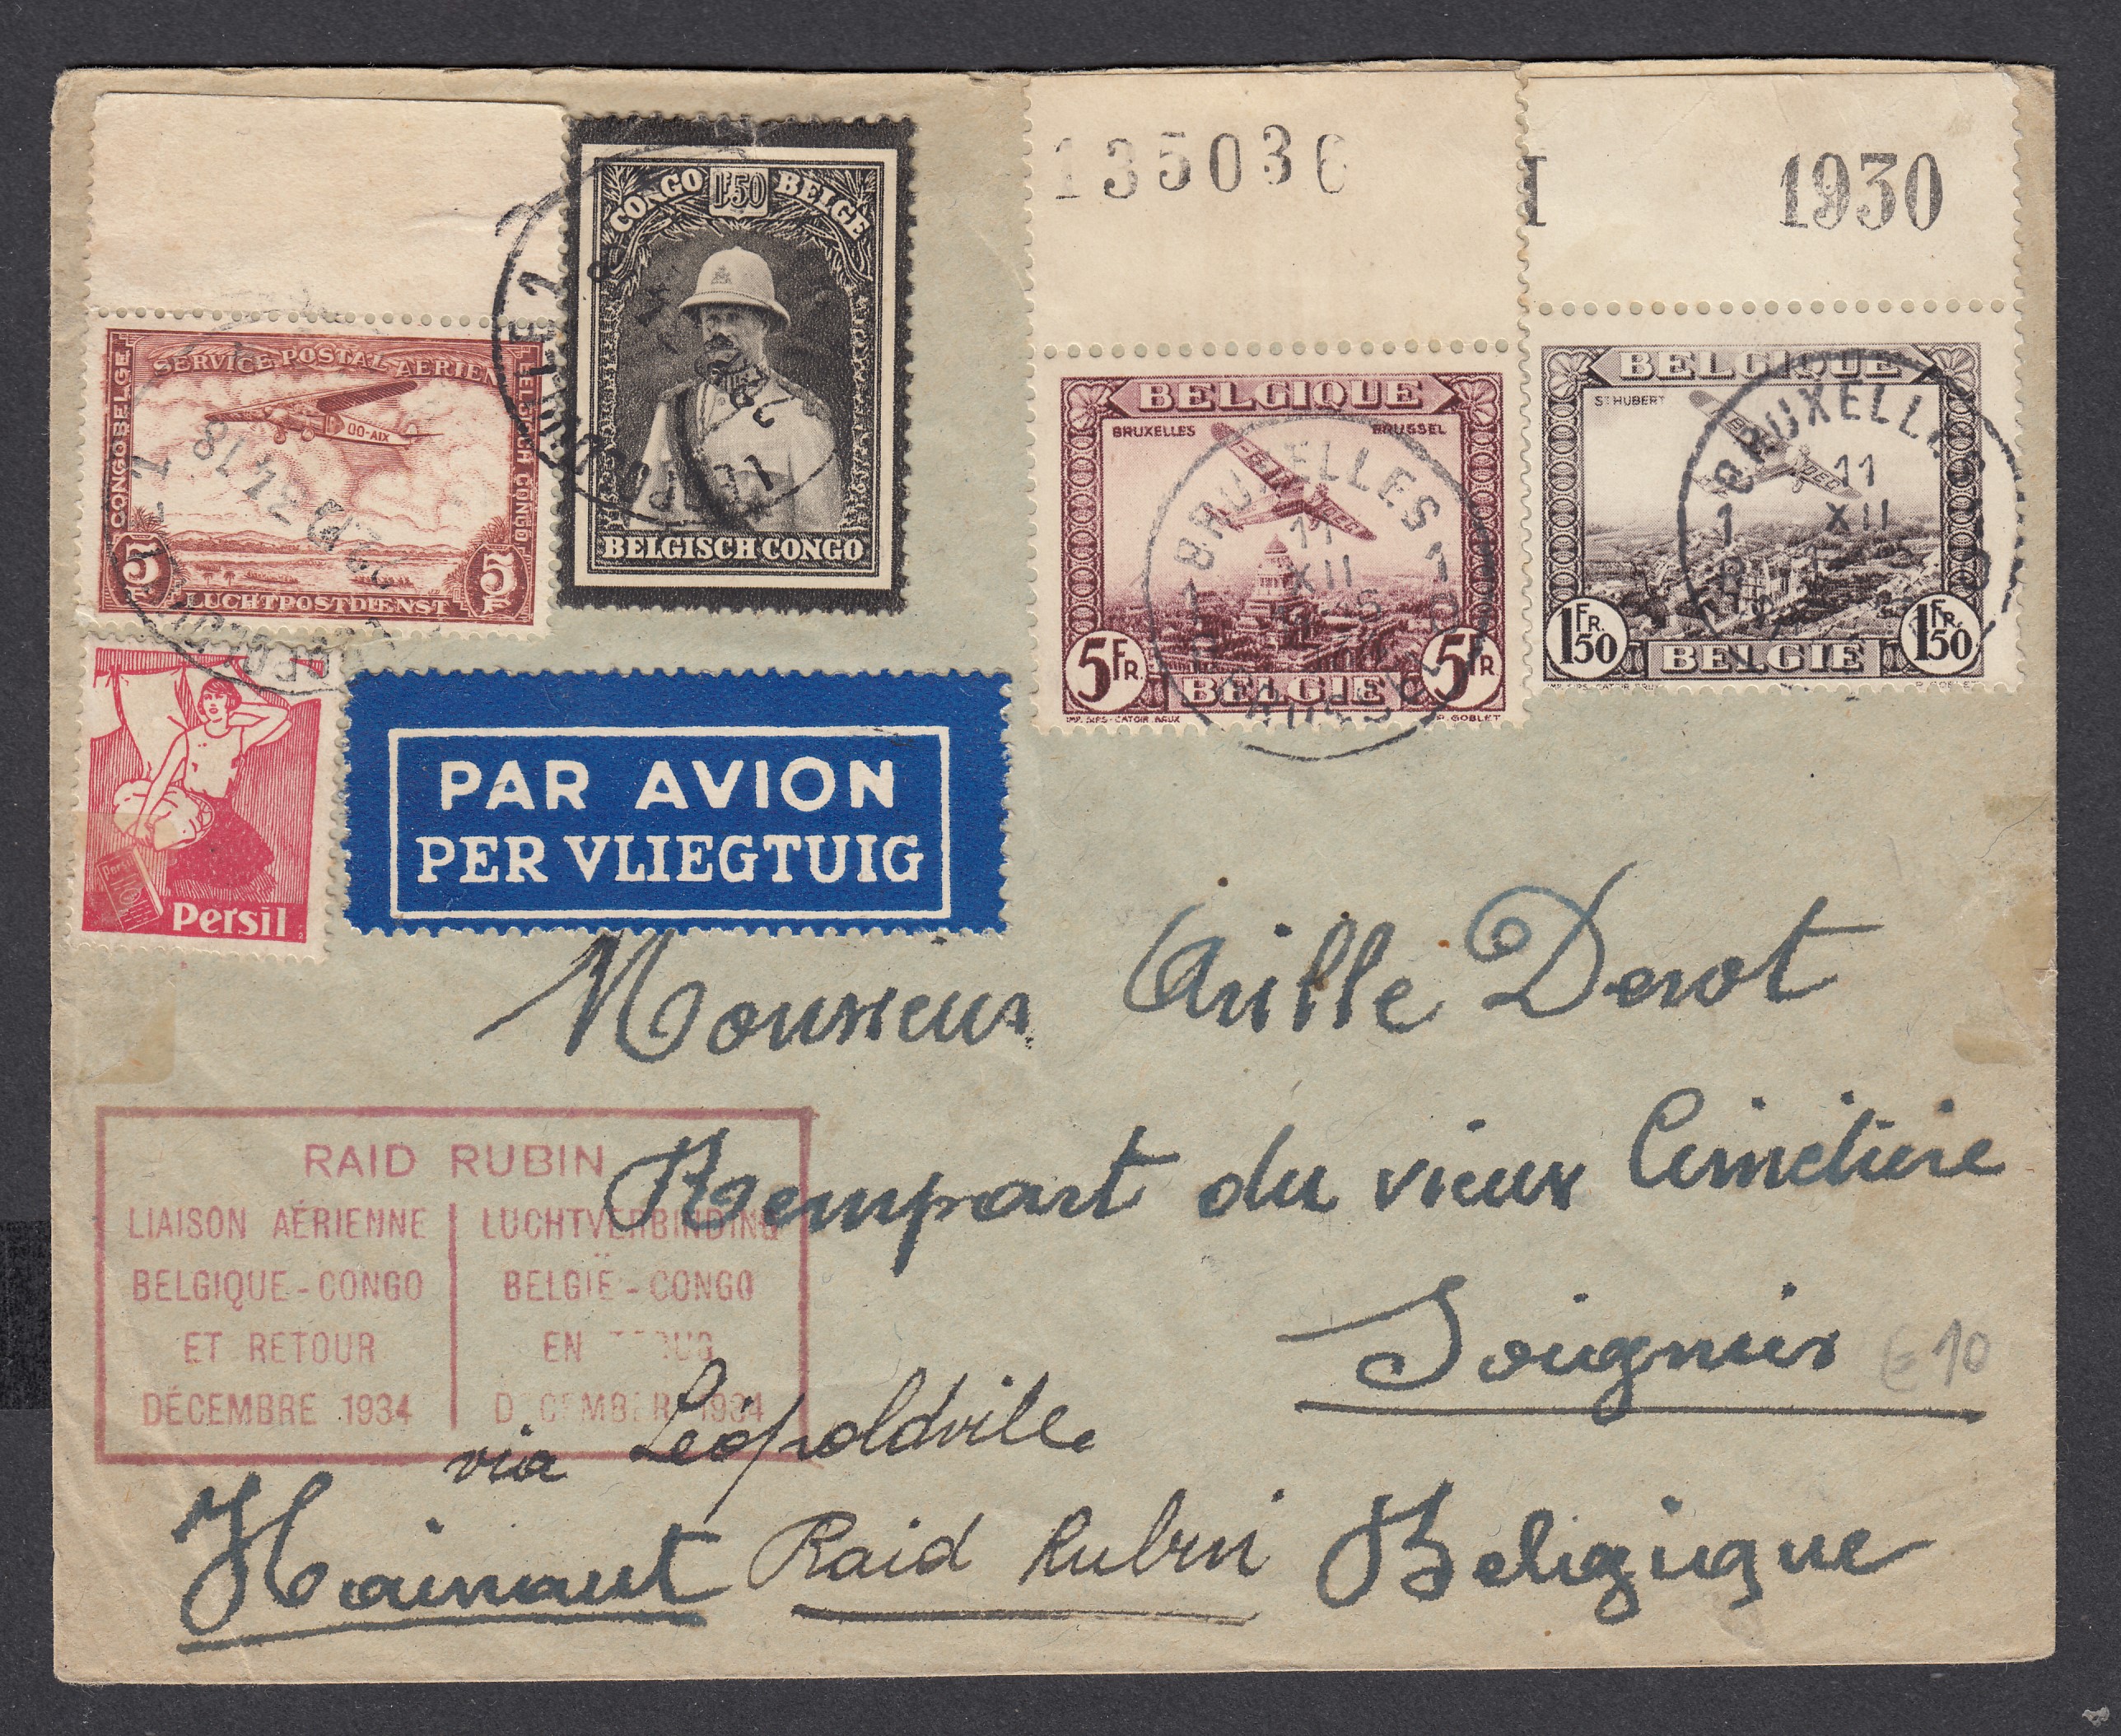 135036
I 1930
CONGO 1F50 BELGE
BELGISCH CONGO
SERVICE POSTAL AERIEN
CONGO BELGE
BELGISCH CONGO
OO-AIX
5
5 F
LUCHTPOSTDIENST
22.12 34.18
BELGIQUE
BRUXELLES BRUSSEL
5 FR. 5 FR.
BELGIE
IMP. SIPS-CATOIR. BRUX P. GOBLET
BRUXELLES 1
11
XII
BRUSSEL
BELGIQUE
ST HUBERT
1 FR. 50 1 FR. 50
BELGIE
BRUXELLES
11
XII
Persil
PAR AVION
PER VLIEGTUIG
Monsieur Derot
Rempart du vieux Cimetière
Soignies
€10
RAID RUBIN
LIAISON AÉRIENNE
BELGIQUE - CONGO
ET RETOUR
DÉCEMBRE 1934
LUCHTVERBINDING
BELGIË - CONGO
EN
1934
via Léopoldville
Hainaut Raid Rubin Belgique